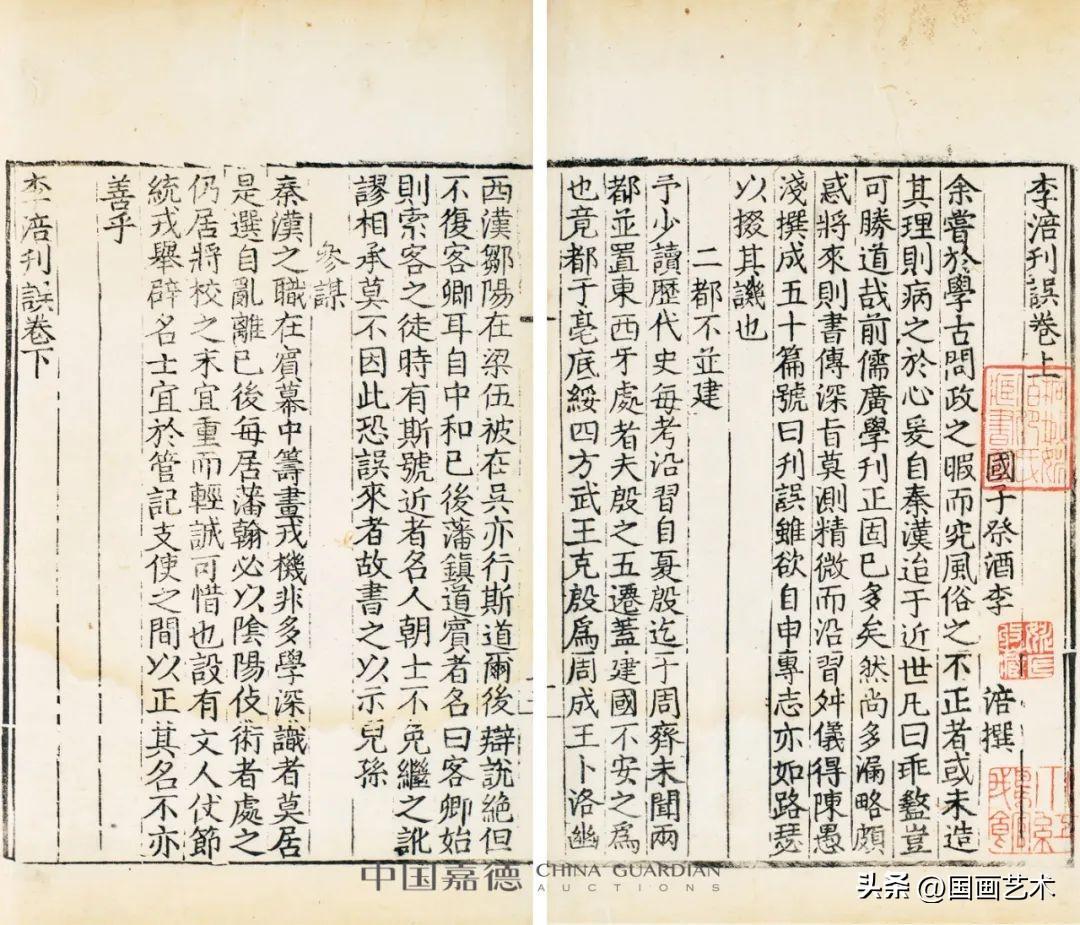 李涪刊誤卷上
國子祭酒李 涪撰
余嘗於學古問政之暇而究風俗之不正者或未造
其理則病之於心爰自秦漢迨于近世凡曰乖盭豈
可勝道哉前儒廣學刊正固已多矣然尚多漏略頗
惑將來則書傳深旨莫測精微而沿習舛儀得陳愚
淺撰成五十篇號曰刊誤雖欲自申專志亦如路瑟
以掇其譏也
二都不並建
予少讀歷代史每考沿習自夏殷迄于周齊未聞兩
都並置東西牙處者夫殷之五遷蓋建國不安之爲
也竟都于亳底綏四方武王克殷爲周成王卜洛幽
西漢鄒陽在梁伍被在吳亦行斯道爾後辯說絶但
不復客卿耳自中和已後藩鎮道賓者名曰客卿始
則索客之徒時有斯號近者名人朝士不免繼之訛
謬相承莫不因此恐誤來者故書之以示兒孫
參謀
秦漢之職在賓幕中籌畫戎機非多學深識者莫居
是選自亂離已後每居藩翰必以陰陽伎術者處之
仍居將校之末宜重而輕誠可惜也設有文人仗節
統戎舉辟名士宜於管記支使之間以正其名不亦
善乎
李涪刊誤卷下
中国嘉德 CHINA GUARDIAN
AUCTIONS
头条 @国画艺术